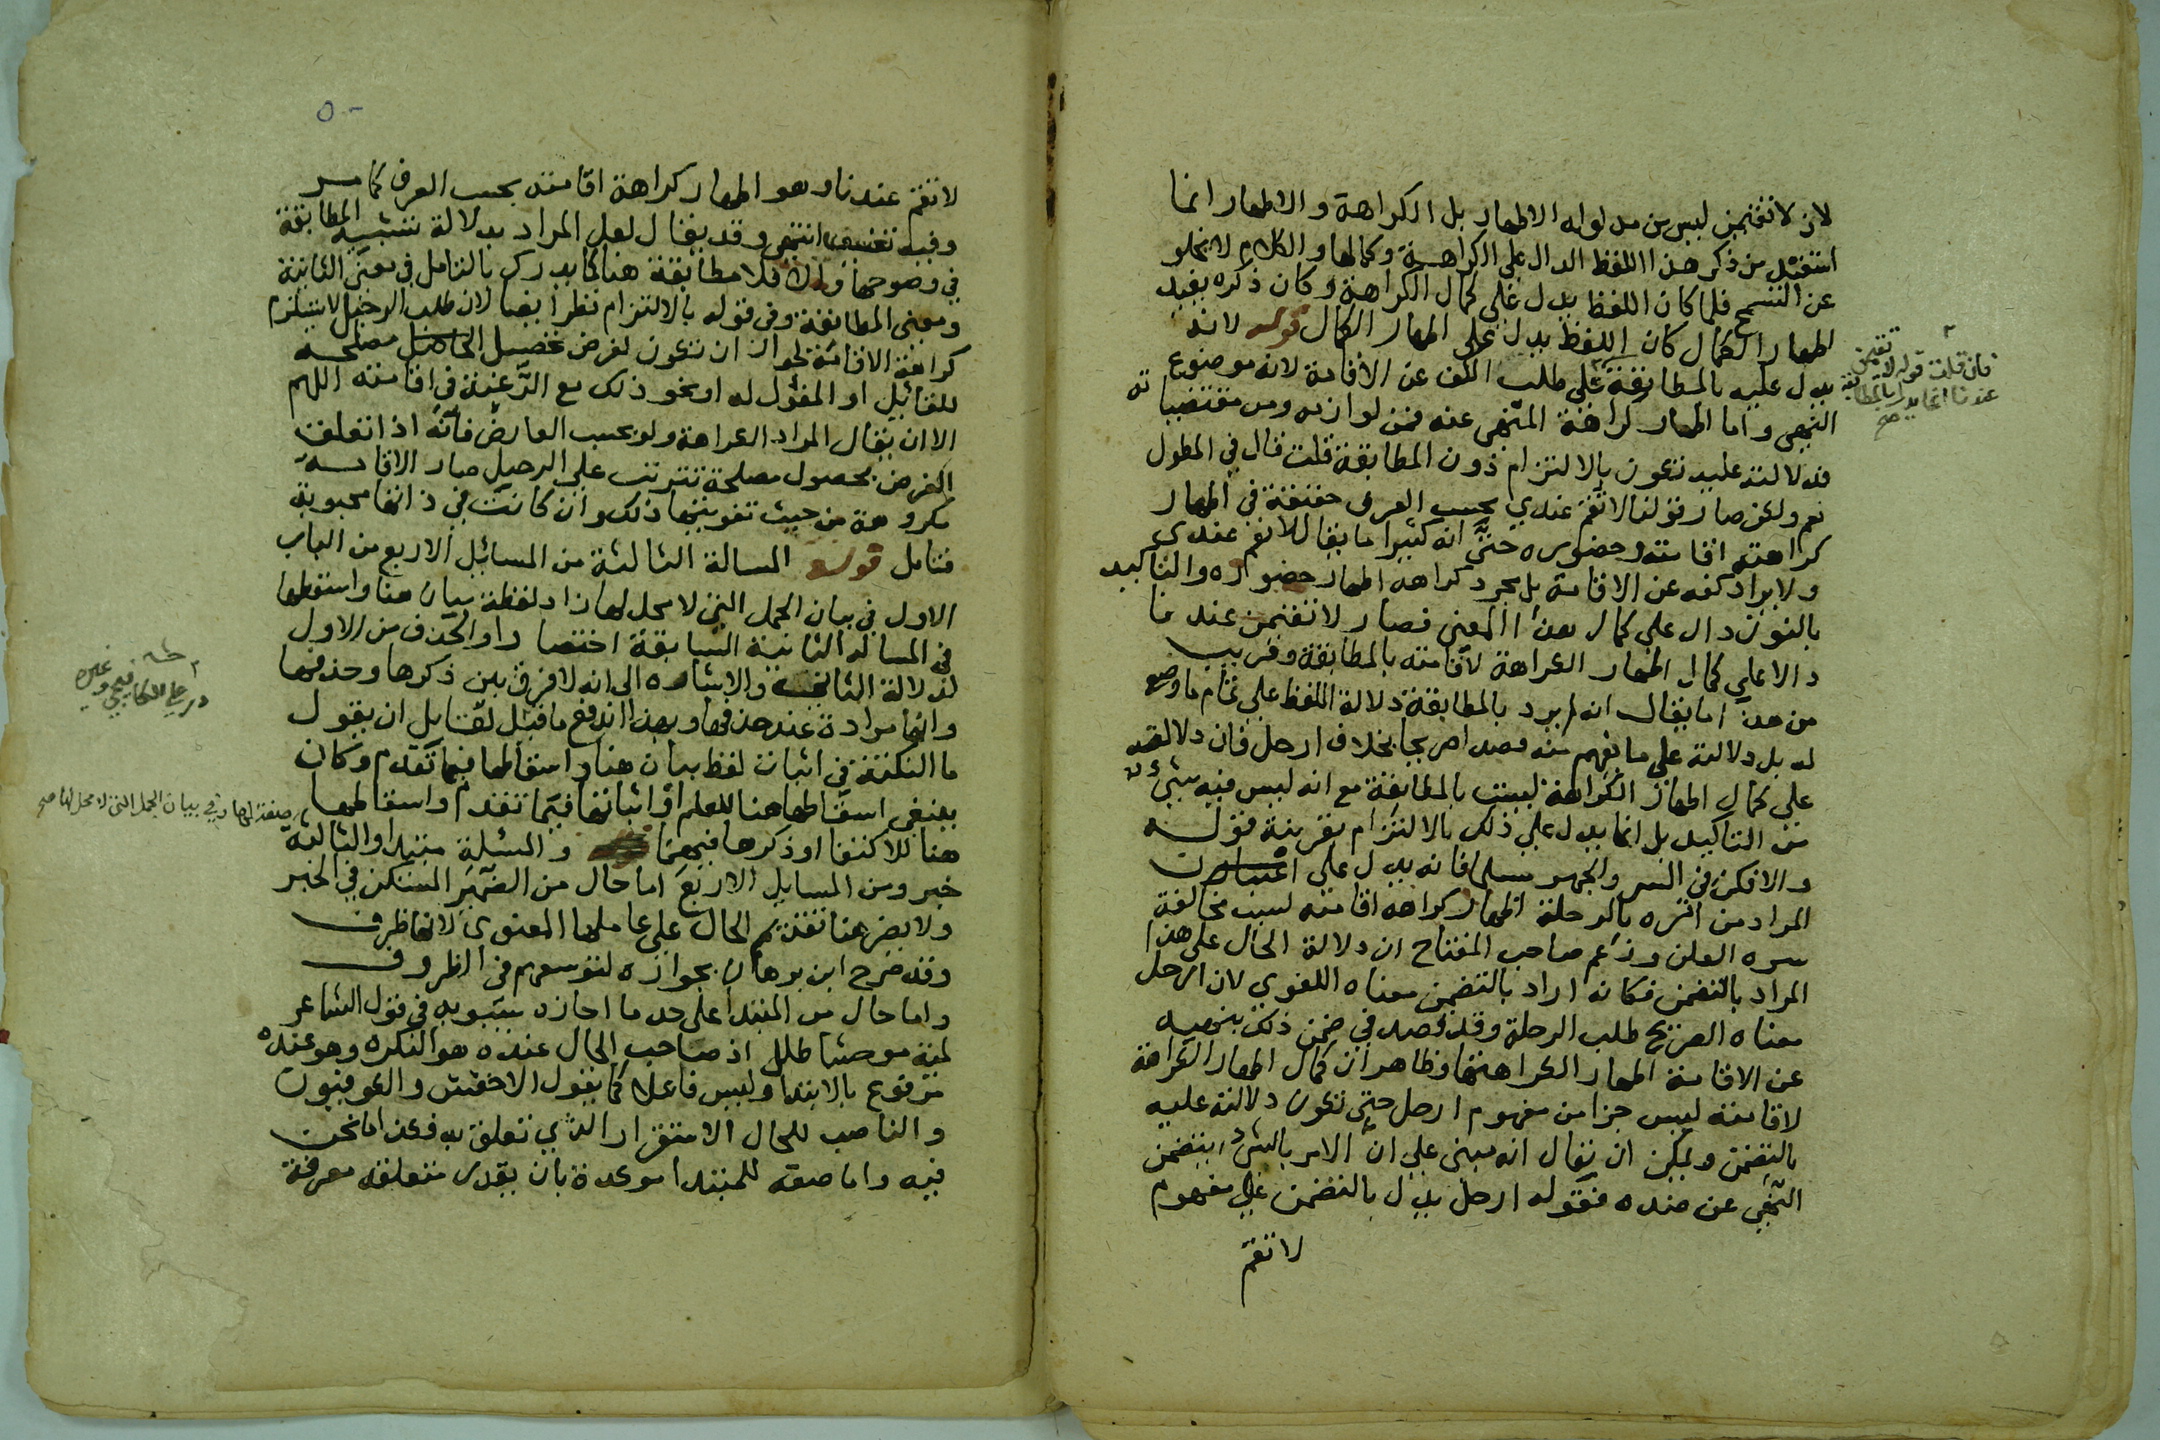 لان لا تقيمن ليس من مدلوله الاظهار بل الكراهة والاظهار انما
استفيد من ذكر هذا اللفظ الدال على الكراهة وكمالها والكلام لا يخلو
عن التسمح فلما كان اللفظ يدل على كمال الكراهة وكان ذكره يفيد
اظهار الكمال كان اللفظ يدل على اظهار الكمال قوله لانه
يدل عليه بالمطابقة على طلب الكف عن الاقامة لانه موضوع
النهى واما اظهار كراهة المنهى عنه فمن لوازمه ومن مقتضياته
فدلالته عليه تكون بالالتزام دون المطابقة قلت قال في المطول
نعم ولكن صار قولنا لا تقم عندي بحسب العرف حقيقة في اظهار
كراهته اقامته وحضوره حتى انه كثيرا ما يقال لا تقم عندي
ولا يراد كفه عن الاقامة بل مجرد كراهة اظهار حضوره والتاكيد
بالنون دال على كمال هذا المعنى فصار لا تقيمن عندنا
دالا على كمال اظهار الكراهة لاقامته بالمطابقة وقريب
من هذا ما يقال انه لم يرد بالمطابقة دلالة اللفظ على تمام ما وضع
له بل دلالته على ما يفهم منه قصدا صريحا بخلاف ارحل فان دلالته
على كمال اظهار الكراهة ليست بالمطابقة مع انه ليس فيه شيء
من التاكيد بل انما يدل على ذلك بالالتزام بقرينة قوله
والا فكن في السر والجهر مسلما فانه يدل على
المراد من امره بالرحلة اظهار كراهة اقامته لسبب مخالفة
سره العلن وزعم صاحب المفتاح ان دلالة الحال على هذا
المراد بالتضمن فكانه اراد بالتضمن معناه اللغوي لان ارحل
معناه الصريح طلب الرحلة وقد قصد في ضمن ذلك بنهيه
عن الاقامة اظهار الكراهتها وظاهر ان كمال اظهار الكراهة
لاقامته ليس جزا من مفهوم ارحل حتى تكون دلالته عليه
بالتضمن ويمكن ان يقال انه مبنى على ان الامر بالشيء يتضمن
النهي عن ضده فقوله ارحل يدل بالتضمن على مفهوم
لا تقم
فان قلت قوله لا تقيمن
عندنا انما يدل بالمطابقة
صح
٥٠
لا تقم عندنا وهو اظهار كراهة اقامته بحسب العرف كما مر
وفيه تعسف انتهى وقد يقال لعل المراد بدلالة تشبيه المطابقة
في وضوحها والا فلا مطابقة هنا كما يدرك بالتامل في معنى الثانية
ومعنى المطابقة وفى قوله بالالتزام نظر ايضا لان طلب الرحيل لا يستلزم
كراهة الاقامة لجواز ان تكون لغرض تحصيل مصلحة
للقائل او المقول له او نحو ذلك مع الرغبة في اقامته اللهم
الا ان يقال المراد الكراهة ولو بحسب العارض فانه اذا تعلق
الغرض بحصول مصلحة تترتب على الرحيل صار الاقامة
مكروهة من حيث تفويتها ذلك وان كانت في ذاتها محبوبة
فتامل قوله المسالة الثالثة من المسائل الاربع من الباب
الاول في بيان الجمل التى لا محل لها زاد لفظة بيان هنا واسقطها
في المسالة الثانية السابقة اختصارا والحذف من الاول
لدلالة الثاني والاشارة الى انه لا فرق بين ذكرها وحذفها
وانها مرادة عند حذفها وبهذا اندفع ما قيل لقائل ان يقول
ما النكتة في اثبات لفظ بيان هنا واسقاطها فيما تقدم وكان
ينبغى اسقاطها هنا للعلم او اثباتها فيما تقدم واسقاطها
هنا للاكتفا او ذكرها فيهما والمسئلة مبتدا والثالثة
خبر ومن المسايل الاربع اما حال من الضمير المستكن في الخبر
ولا يضر هنا تقديم الحال على عاملها المعنوى لانها ظرف
وقد صرح ابن برهان بجوازه لتوسعهم فى الظروف
واما حال من المبتدا على حد ما اجازه سيبويه في قول الشاعر
لمية موحشا طلل اذ صاحب الحال عنده هو النكرة وهو عنده
مرفوع بالابتدا وليس فاعلا كما يقول الاخفش والكوفيون
والناصب للحال الاستقرار الذي تعلق به فكذا ما نحن
فيه واما صفة للمبتدا موكدة بان يقدر متعلقه معرفة
در على الكافيجي وغيره
صفة لها وفي بيان الجمل التى لا محل لها صح